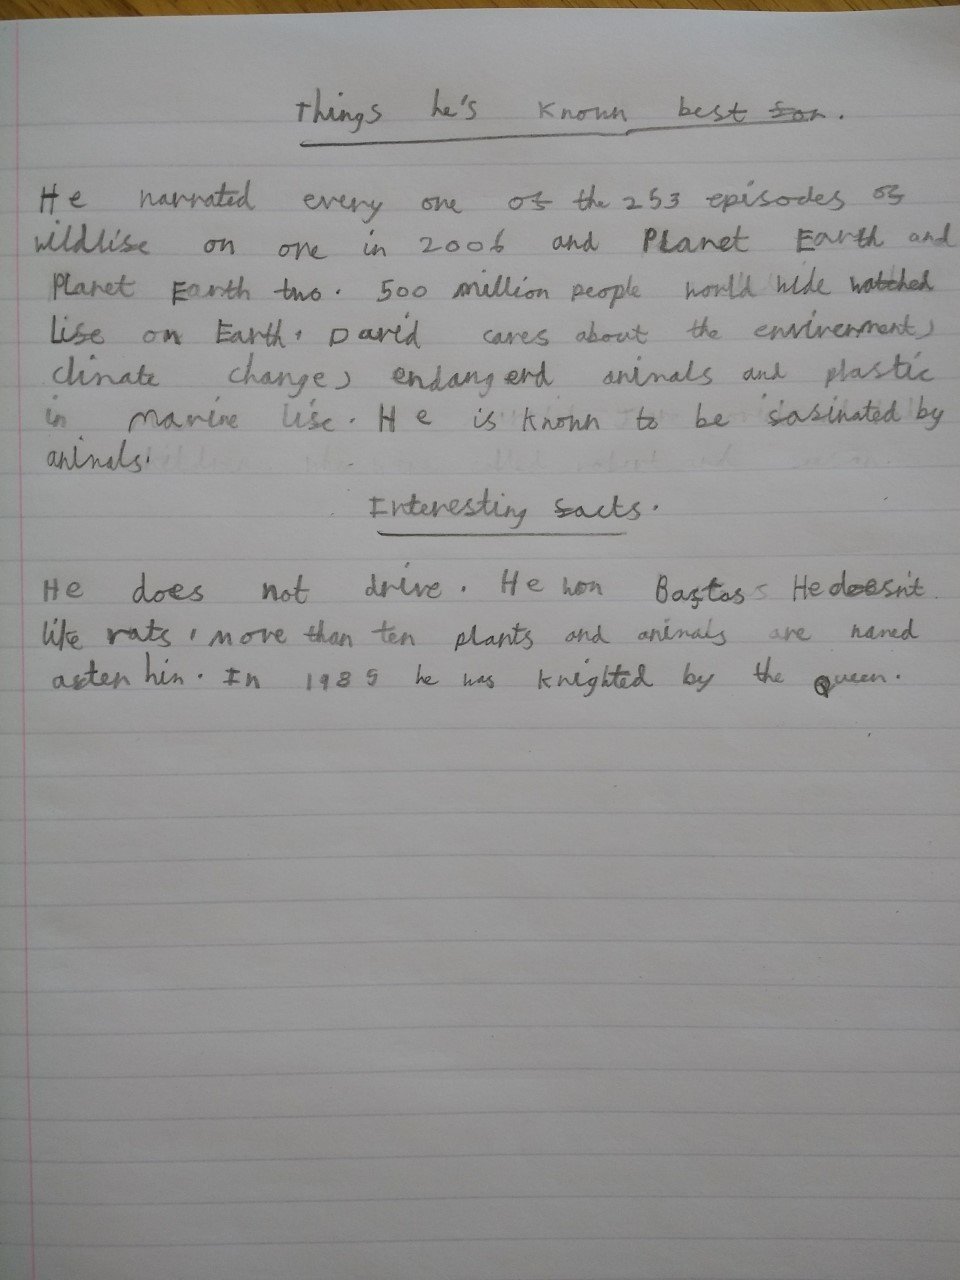 Things he's known best for.
He narrated every one of the 253 episodes of
wildlife on one in 2006 and Planet Earth and
Planet Earth two. 500 million people world wide watched
life on Earth. David cares about the envirenment,
climate change, endangerd animals and plastic
in marine life. He is known to be fasinated by
animals.
Interesting facts.
He does not drive. He won Baftas He doesn't
like rats, more than ten plants and animals are named
after him. In 1985 he was knighted by the Queen.